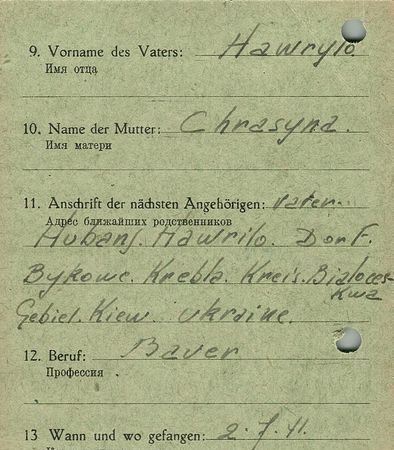 9. Vorname des Vaters: Hawryło
Имя отца
10. Name der Mutter: Chrasyna.
Имя матери
11. Anschrift der nächsten Angehörigen: Vater.
Адрес ближайших родственников
Hawrilo. Dorf.
Bykowe. Krebla. Kreis. Bialoces-
kwa
Gebiet. Kiew. Ukraine.
12. Beruf: Bauer
Профессия
13 Wann und wo gefangen: 2.7.41.